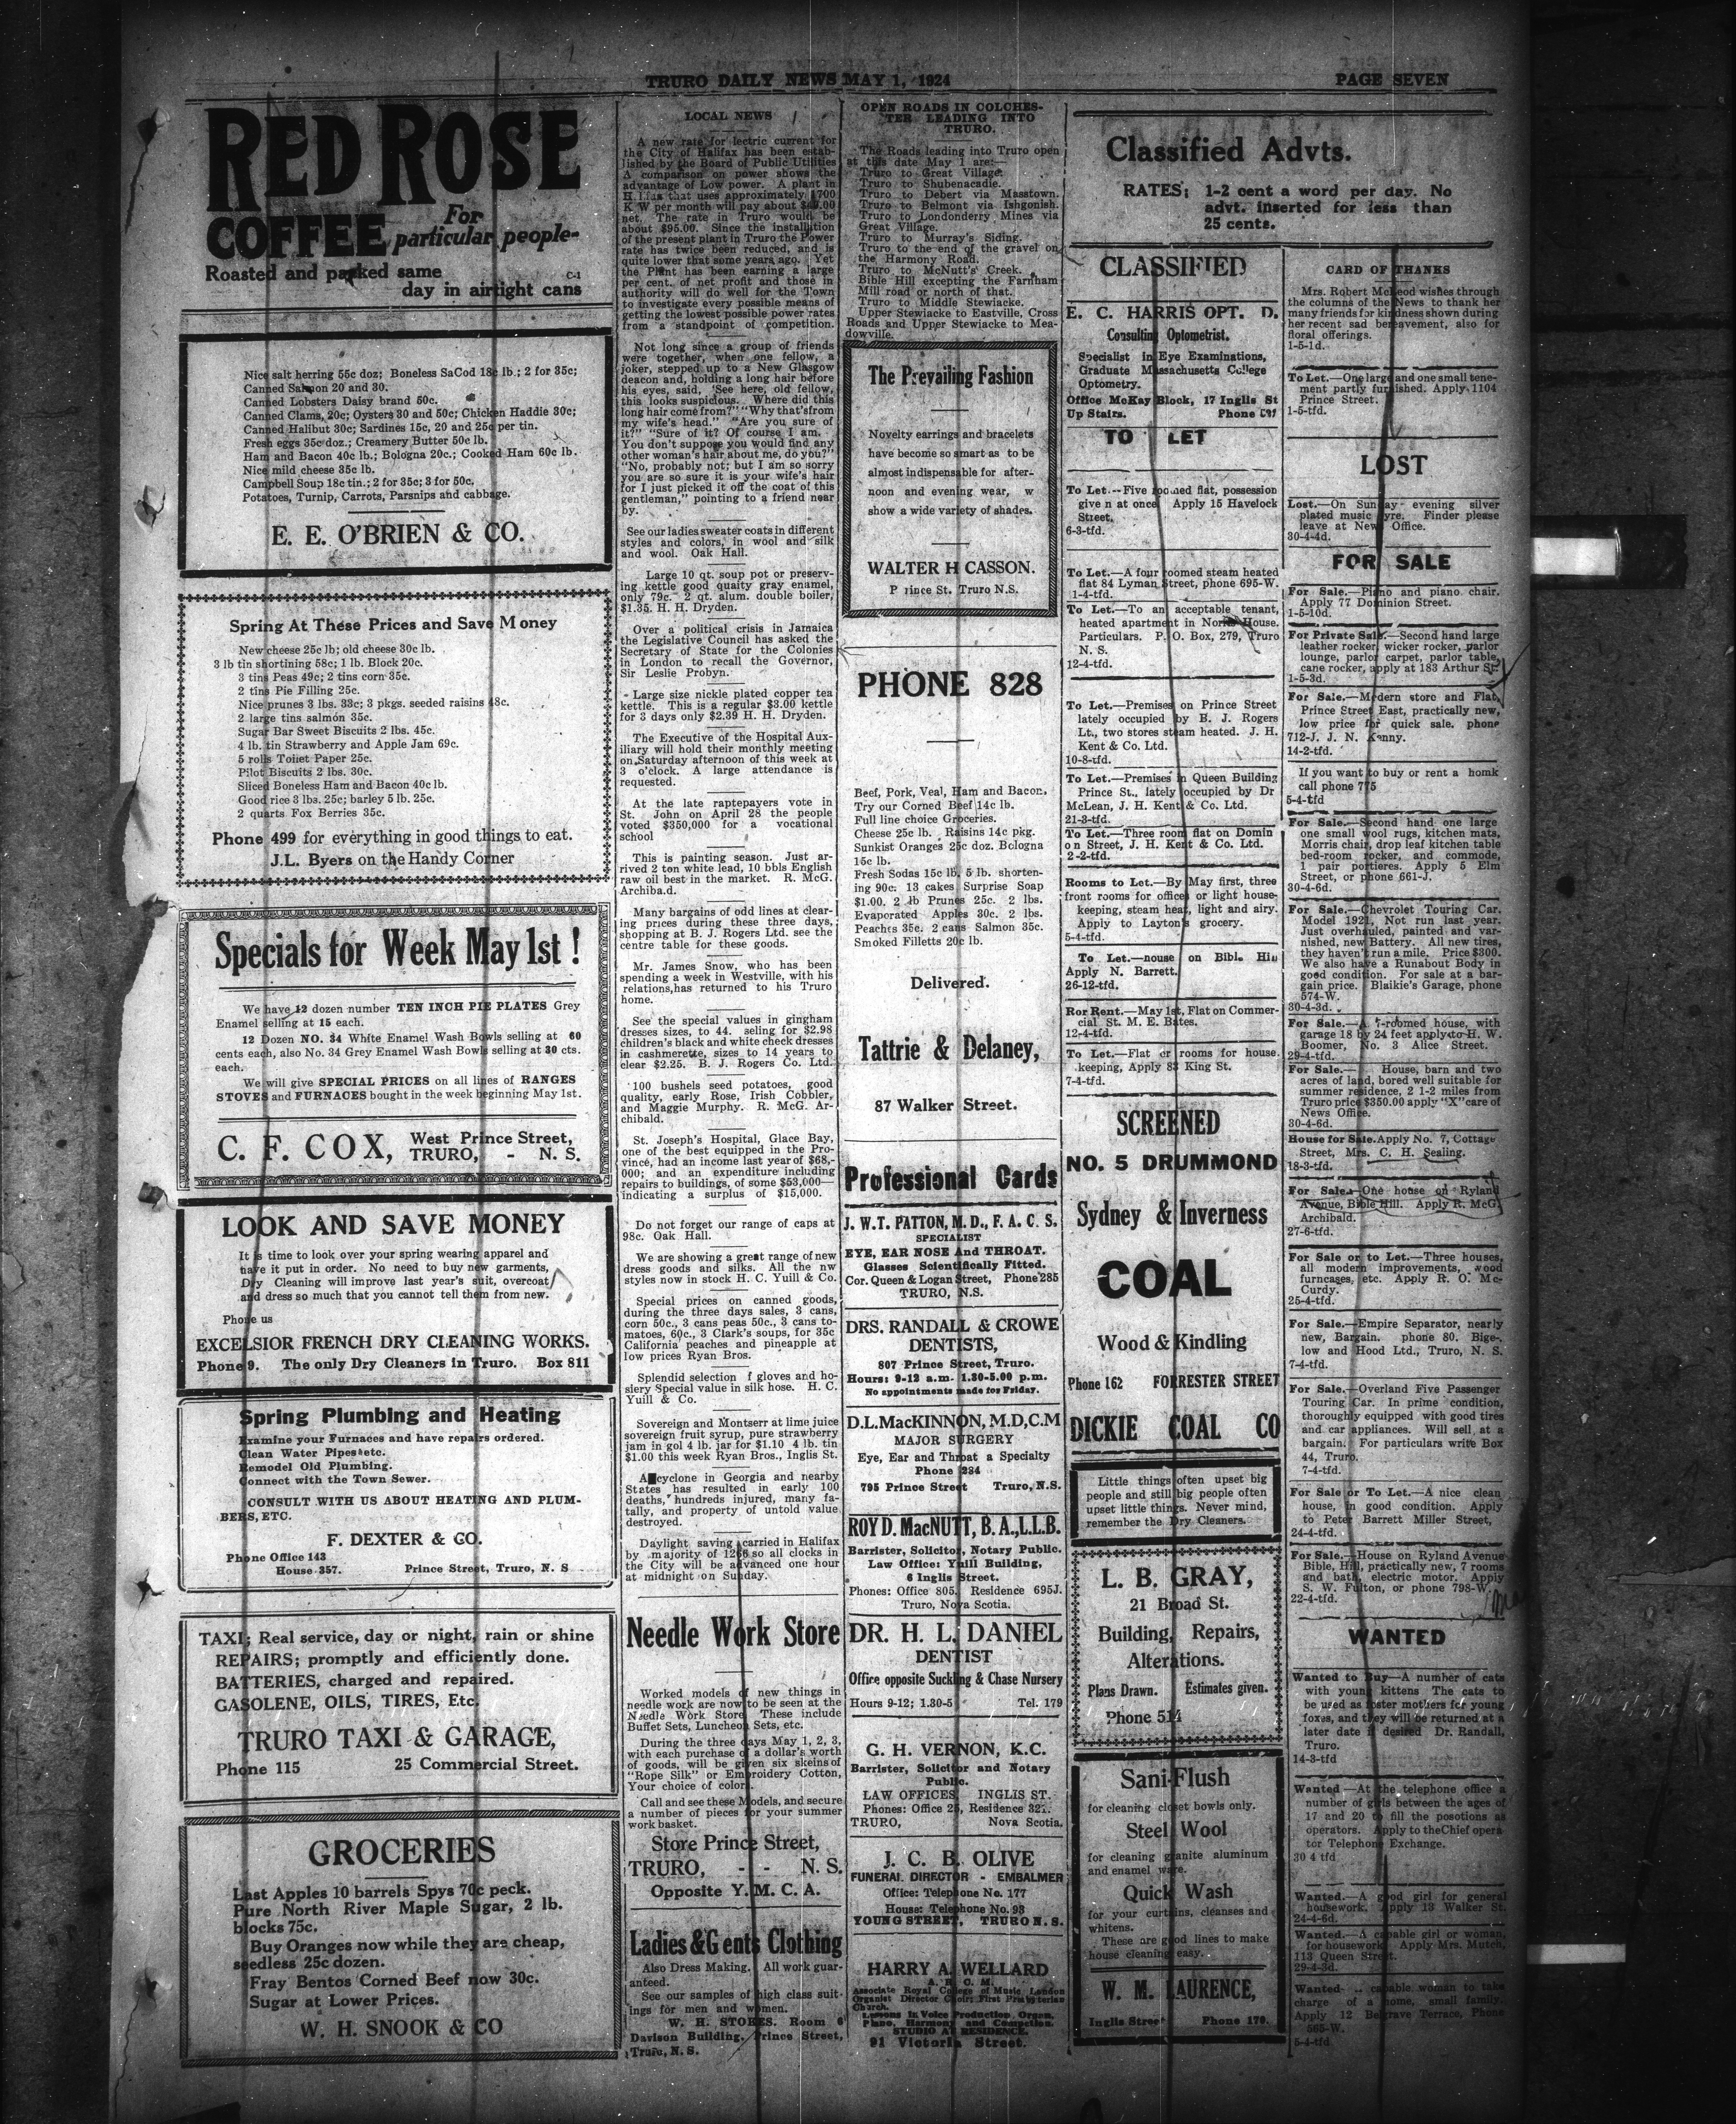 TRURO DAILY NEWS MAY 1, 1924
PAGE SEVEN
RED ROSE
COFFEE For
particular people-
Roasted and packed same
C-1
day in airtight cans
Nice salt herring 55c doz; Boneless SaCod 18c lb.; 2 for 35c;
Canned Salmon 20 and 30.
Canned Lobsters Daisy brand 50c.
Canned Clams, 20c; Oysters 30 and 50c; Chicken Haddie 30c;
Canned Halibut 30c; Sardines 15c, 20 and 25c per tin.
Fresh eggs 35c doz.; Creamery Butter 50c lb.
Ham and Bacon 40c lb.; Bologna 20c.; Cooked Ham 60c lb.
Nice mild cheese 35c lb.
Campbell Soup 18c tin.; 2 for 35c; 3 for 50c.
Potatoes, Turnip, Carrots, Parsnips and cabbage.
E. E. O'BRIEN & CO.
Spring At These Prices and Save Money
New cheese 25c lb; old cheese 30c lb.
3 lb tin shortining 58c; 1 lb. Block 20c.
3 tins Peas 49c; 2 tins corn 35c.
2 tins Pie Filling 25c.
Nice prunes 3 lbs. 33c; 3 pkgs. seeded raisins 48c.
2 large tins salmon 35c.
Sugar Bar Sweet Biscuits 2 lbs. 45c.
4 lb. tin Strawberry and Apple Jam 69c.
5 rolls Toilet Paper 25c.
Pilot Biscuits 2 lbs. 30c.
Sliced Boneless Ham and Bacon 40c lb.
Good rice 3 lbs. 25c; barley 5 lb. 25c.
2 quarts Fox Berries 35c.
Phone 499 for everything in good things to eat.
J.L. Byers on the Handy Corner
Specials for Week May 1st !
We have 12 dozen number TEN INCH PIE PLATES Grey
Enamel selling at 15 each.
12 Dozen NO. 34 White Enamel Wash Bowls selling at 60
cents each, also No. 34 Grey Enamel Wash Bowls selling at 30 cts.
each.
We will give SPECIAL PRICES on all lines of RANGES
STOVES and FURNACES bought in the week beginning May 1st.
C. F. COX, West Prince Street,
TRURO, - N. S.
LOOK AND SAVE MONEY
It is time to look over your spring wearing apparel and
have it put in order. No need to buy new garments,
Dry Cleaning will improve last year's suit, overcoat
and dress so much that you cannot tell them from new.
Phone us
EXCELSIOR FRENCH DRY CLEANING WORKS.
Phone 9. The only Dry Cleaners in Truro. Box 811
Spring Plumbing and Heating
Examine your Furnaces and have repairs ordered.
Clean Water Pipes etc.
Remodel Old Plumbing.
Connect with the Town Sewer.
CONSULT WITH US ABOUT HEATING AND PLUM-
BERS, ETC.
F. DEXTER & CO.
Phone Office 143
House 357. Prince Street, Truro, N. S
TAXI; Real service, day or night, rain or shine
REPAIRS; promptly and efficiently done.
BATTERIES, charged and repaired.
GASOLENE, OILS, TIRES, Etc.
TRURO TAXI & GARAGE,
Phone 115 25 Commercial Street.
GROCERIES
Last Apples 10 barrels Spys 70c peck.
Pure North River Maple Sugar, 2 lb.
blocks 75c.
Buy Oranges now while they are cheap,
seedless 25c dozen.
Fray Bentos Corned Beef now 30c.
Sugar at Lower Prices.
W. H. SNOOK & CO
LOCAL NEWS
A new rate for lectric current for
the City of Halifax has been estab-
lished by the Board of Public Utilities
A comparison on power shows the
advantage of Low power. A plant in
that uses approximately 1700
K W per month will pay about
net. The rate in Truro would be
about $95.00. Since the installition
of the present plant in Truro the Power
rate has twice been reduced, and is
quite lower that some years ago. Yet
the Plant has been earning a large
per cent. of net profit and those in
authority will do well for the Town
to investigate every possible means of
getting the lowest possible power rates
from a standpoint of competition.
Not long since a group of friends
were together, when one fellow, a
joker, stepped up to a New Glasgow
deacon and, holding a long hair before
his eyes, said, 'See here, old fellow,
this looks suspicious. Where did this
long hair come from?" "Why that'sfrom
my wife's head." "Are you sure of
it?" "Sure of it? Of course I am.
You don't suppose you would find any
other woman's hair about me, do you?"
"No, probably not; but I am so sorry
you are so sure it is your wife's hair
for I just picked it off the coat of this
gentleman," pointing to a friend near
by.
See our ladies sweater coats in different
styles and colors, in wool and silk
and wool. Oak Hall.
Large 10 qt. soup pot or preserv-
ing kettle good quaity gray enamel,
only 79c. 2 qt. alum. double boiler,
$1.35. H. H. Dryden.
Over a political crisis in Jamaica
the Legislative Council has asked the
Secretary of State for the Colonies
in London to recall the Governor,
Sir Leslie Probyn.
Large size nickle plated copper tea
kettle. This is a regular $3.00 kettle
for 3 days only $2.39 H. H. Dryden.
The Executive of the Hospital Aux-
iliary will hold their monthly meeting
on Saturday afternoon of this week at
3 o'clock. A large attendance is
requested.
At the late raptepayers vote in
St. John on April 28 the people
voted $350,000 for a vocational
school
This is painting season. Just ar-
rived 2 ton white lead, 10 bbls English
raw oil best in the market. R. McG.
Archiba.d.
Many bargains of odd lines at clear-
ing prices during these three days,
shopping at B. J. Rogers Ltd. see the
centre table for these goods.
Mr. James Snow, who has been
spending a week in Westville, with his
relations,has returned to his Truro
home.
See the special values in gingham
dresses sizes, to 44. seling for $2.98
children's black and white check dresses
in cashmerette, sizes to 14 years to
clear $2.25. B. J. Rogers Co. Ltd.
100 bushels seed potatoes, good
quality, early Rose, Irish Cobbler,
and Maggie Murphy. R. McG. Ar-
chibald.
St. Joseph's Hospital, Glace Bay,
one of the best equipped in the Pro-
vince, had an income last year of $68,-
000; and an expenditure including
repairs to buildings, of some $53,000—
indicating a surplus of $15,000.
Do not forget our range of caps at
98c. Oak Hall.
We are showing a great range of new
dress goods and silks. All the nw
styles now in stock H. C. Yuill & Co.
Special prices on canned goods,
during the three days sales, 3 cans,
corn 50c., 3 cans peas 50c., 3 cans to-
matoes, 60c., 3 Clark's soups, for 35c
California peaches and pineapple at
low prices Ryan Bros.
Splendid selection f gloves and ho-
slery Special value in silk hose. H. C.
Yuill & Co.
Sovereign and Montserr at lime juice
sovereign fruit syrup, pure strawberry
jam in gol 4 lb. jar for $1.10 4 lb. tin
$1.00 this week Ryan Bros., Inglis St.
A cyclone in Georgia and nearby
States has resulted in early 100
deaths, hundreds injured, many fa-
tally, and property of untold value
destroyed.
Daylight saving carried in Halifax
by majority of so all clocks in
the City will be advanced one hour
at midnight on Sunday.
Needle Work Store
Worked models of new things in
needle work are now to be seen at the
Needle Work Store. These include
Buffet Sets, Luncheon Sets, etc.
During the three days May 1, 2, 3,
with each purchase of a dollar's worth
of goods, will be given six skeins of
"Rope Silk" or Embroidery Cotton,
Your choice of colors.
Call and see these Models, and secure
a number of pieces for your summer
work basket.
Store Prince Street,
TRURO, - - N. S.
Opposite Y. M. C. A.
Ladies & Gents Clothing
Also Dress Making. All work guar-
anteed.
See our samples of high class suit-
ings for men and women.
W. H. STOKES. Room 6
Davison Building, Prince Street,
Truro, N. S.
OPEN ROADS IN COLCHES-
TER LEADING INTO
TRURO.
The Roads leading into Truro open
at this date May 1 are:—
Truro to Great Village.
Truro to Shubenacadie.
Truro to Debert via Masstown.
Truro to Belmont via Ishgonish.
Truro to Londonderry Mines via
Great Village.
Truro to Murray's Siding.
Truro to the end of the gravel on
the Harmony Road.
Truro to McNutt's Creek.
Bible Hill excepting the Farnham
Mill road or north of that.
Truro to Middle Stewiacke.
Upper Stewiacke to Eastville, Cross
Roads and Upper Stewiacke to Mea-
dowville.
The Prevailing Fashion
Novelty earrings and bracelets
have become so smart as to be
almost indispensable for after-
noon and evening wear, w
show a wide variety of shades.
WALTER H CASSON.
P ince St. Truro N.S.
PHONE 828
Beef, Pork, Veal, Ham and Bacon.
Try our Corned Beef 14c lb.
Full line choice Groceries.
Cheese 25c lb. Raisins 14c pkg.
Sunkist Oranges 25c doz. Bologna
15c lb.
Fresh Sodas 15c lb. 5 lb. shorten-
ing 90c. 13 cakes Surprise Soap
$1.00. 2 lb Prunes 25c. 2 lbs.
Evaporated Apples 30c. 2 lbs.
Peaches 35c. 2 cans Salmon 35c.
Smoked Filletts 20c lb.
Delivered.
Tattrie & Delaney,
87 Walker Street.
Professional Cards
J. W.T. PATTON, M. D., F. A. C. S.
SPECIALIST
EYE, EAR NOSE And THROAT.
Glasses Scientifically Fitted.
Cor. Queen & Logan Street, Phone 285
TRURO, N.S.
DRS. RANDALL & CROWE
DENTISTS,
807 Prince Street, Truro.
Hours: 9-12 a.m. 1.30-5.00 p.m.
No appointments made for Friday.
D.L. MacKINNON, M.D,C.M
MAJOR SURGERY
Eye, Ear and Throat a Specialty
Phone 234
795 Prince Street Truro, N.S.
ROY D. MacNUTT, B. A.,L.L.B.
Barrister, Solicitor, Notary Public.
Law Office: Yuill Building,
6 Inglis Street.
Phones: Office 805. Residence 695J.
Truro, Nova Scotia.
DR. H. L. DANIEL
DENTIST
Office opposite Suckling & Chase Nursery
Hours 9-12; 1.30-5 Tel. 179
G. H. VERNON, K.C.
Barrister, Solicitor and Notary
Public.
LAW OFFICES, INGLIS ST.
Phones: Office 25, Residence
TRURO, Nova Scotia.
J. C. B. OLIVE
FUNERAL DIRECTOR - EMBALMER
Office: Telephone No. 177
House: Telephone No. 93
YOUNG STREET, TRURO N. S.
HARRY A. WELLARD
A. R. C. M.
Associate Royal College of Music London
Organist Director Choir: First Presbyterian
Church.
Lessons in Voice Production, Organ,
Piano, Harmony and
STUDIO AT RESIDENCE.
91 Victoria Street.
Classified Advts.
RATES; 1-2 cent a word per day. No
advt. inserted for less than
25 cents.
CLASSIFIED
E. C. HARRIS OPT. D.
Consulting Optometrist.
Specialist in Eye Examinations,
Graduate Massachusetts College
Optometry.
Office McKay Block, 17 Inglis St
Up Stairs. Phone
TO LET
To Let.--Five roomed flat, possession
give n at once Apply 15 Havelock
Street.
6-3-tfd.
To Let.—A four roomed steam heated
flat 84 Lyman Street, phone 695-W.
1-4-tfd.
To Let.—To an acceptable tenant,
heated apartment in Norris House.
Particulars. P. O. Box, 279, Truro
N. S.
12-4-tfd.
To Let.—Premises on Prince Street
lately occupied by B. J. Rogers
Lt., two stores steam heated. J. H.
Kent & Co. Ltd.
10-8-tfd.
To Let.—Premises in Queen Building
Prince St., lately occupied by Dr
McLean, J. H. Kent & Co. Ltd.
21-3-tfd.
To Let.—Three room flat on Domin
on Street, J. H. Kent & Co. Ltd.
2-2-tfd.
Rooms to Let.—By May first, three
front rooms for offices or light house-
keeping, steam heat, light and airy.
Apply to Layton's grocery.
5-4-tfd.
To Let.—house on Bible Hill
Apply N. Barrett.
26-12-tfd.
Ror Rent.—May 1st, Flat on Commer-
cial St. M. E. Bates.
12-4-tfd.
To Let.—Flat or rooms for house.
keeping, Apply 83 King St.
7-4-tfd.
SCREENED
NO. 5 DRUMMOND
Sydney & Inverness
COAL
Wood & Kindling
Phone 162 FORRESTER STREET
DICKIE COAL CO
Little things often upset big
people and still big people often
upset little things. Never mind,
remember the Dry Cleaners.
L. B. GRAY,
21 Broad St.
Building, Repairs,
Alterations.
Plans Drawn. Estimates given.
Phone 514
Sani-Flush
for cleaning closet bowls only.
Steel Wool
for cleaning granite aluminum
and enamel ware.
Quick Wash
for your curtains, cleanses and
whitens.
These are good lines to make
house cleaning easy.
W. M. LAURENCE,
Inglis Street Phone 170.
CARD OF THANKS
Mrs. Robert McLeod wishes through
the columns of the News to thank her
many friends for kindness shown during
her recent sad bereavement, also for
floral offerings.
1-5-1d.
To Let.—One large and one small tene-
ment partly furnished. Apply 1104
Prince Street.
1-5-tfd.
LOST
Lost.—On Sunday evening silver
plated music lyre. Finder please
leave at New Office.
30-4-4d.
FOR SALE
For Sale.—Piano and piano chair.
Apply 77 Dominion Street.
1-5-10d.
For Private Sale.—Second hand large
leather rocker, wicker rocker, parlor
lounge, parlor carpet, parlor table,
cane rocker, apply at 183 Arthur St.
1-5-3d.
For Sale.—Modern store and Flat,
Prince Street East, practically new,
low price for quick sale. phone
712-J. J. N. Kenny.
14-2-tfd.
If you want to buy or rent a homk
call phone 775
5-4-tfd
For Sale.—Second hand one large
one small wool rugs, kitchen mats,
Morris chair, drop leaf kitchen table
bed-room rocker, and commode,
1 pair portieres. Apply 5 Elm
Street, or phone 661-J.
30-4-6d.
For Sale.—Chevrolet Touring Car.
Model 1921. Not run last year.
Just overhauled, painted and var-
nished, new Battery. All new tires,
they haven't run a mile. Price $300.
We also have a Runabout Body in
good condition. For sale at a bar-
gain price. Blaikie's Garage, phone
574-W.
30-4-3d.
For Sale.—A 7-roomed house, with
garage 18 by 24 feet apply to H. W.
Boomer, No. 3 Alice Street.
29-4-tfd.
For Sale.— House, barn and two
acres of land, bored well suitable for
summer residence, 2 1-2 miles from
Truro price $350.00 apply "X"care of
News Office.
30-4-6d.
House for Sale. Apply No. 7, Cottage
Street, Mrs. C. H. Sealing.
18-3-tfd.
For Sale.—One house on Ryland
Avenue, Bible Hill. Apply R. McG.
Archibald.
27-6-tfd.
For Sale or to Let.—Three houses,
all modern improvements, wood
furncases, etc. Apply R. O. Mc-
Curdy.
25-4-tfd.
For Sale.—Empire Separator, nearly
new, Bargain. phone 80. Bige-
low and Hood Ltd., Truro, N. S.
7-4-tfd.
For Sale.—Overland Five Passenger
Touring Car. In prime condition,
thoroughly equipped with good tires
and car appliances. Will sell at a
bargain. For particulars write Box
44, Truro.
7-4-tfd.
For Sale or To Let.—A nice clean
house, in good condition. Apply
to Peter Barrett Miller Street,
24-4-tfd.
For Sale.—House on Ryland Avenue
Bible, Hill, practically new, 7 rooms
and bath, electric motor. Apply
S. W. Fulton, or phone 798-W.
22-4-tfd.
WANTED
Wanted to Buy—A number of cats
with young kittens The cats to
be used as foster mothers for young
foxes, and they will be returned at a
later date if desired Dr. Randall,
Truro.
14-3-tfd
Wanted—At the telephone office a
number of girls between the ages of
17 and 20 to fill the posotions as
operators. Apply to theChief opera
tor Telephone Exchange.
30 4 tfd
Wanted.—A good girl for general
housework. Apply 13 Walker St.
24-4-6d.
Wanted.—A capable girl or woman,
for housework. Apply Mrs. Mutch,
113 Queen Street.
29-4-3d.
Wanted- capable woman to take
charge of a home, small family.
Apply 12 Belgrave Terrace, Phone
565-W.
5-4-tfd